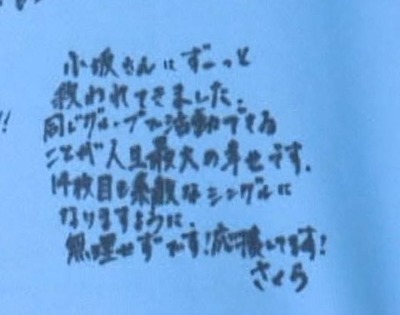 小坂さんにずーっと
救われてきました。
同じグループで活動できる
ことが人生最大の幸せです。
14枚目も素敵なシングルに
なりますように。
無理せずです!応援してます!
さくら
!!